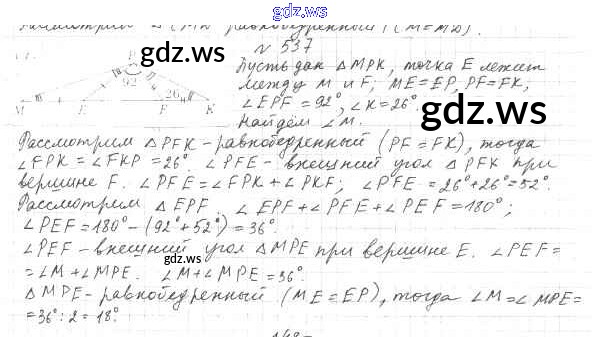 gdz.ws
Рассмотрим △ равнобедренный (M=MD).
N 537
Пусть дан △MPK, точка E лежит
между M и F; ME=EP, PF=FK,
∠EPF = 92°, ∠K=26°.
Найдём ∠M.
gdz.ws
P
92°
26°
M E F K
Рассмотрим △PFK - равнобедренный (PF=FK), тогда
∠FPK = ∠FKP = 26°. ∠PFE - внешний угол △PFK при
вершине F. ∠PFE = ∠FPK + ∠PKF; ∠PFE = 26°+26°=52°.
Рассмотрим △EPF. ∠EPF + ∠PFE + ∠PEF = 180°;
∠PEF = 180° - (92° + 52°) = 36°.
∠PEF - внешний угол △MPE при вершине E. ∠PEF =
= ∠M + ∠MPE. ∠M + ∠MPE = 36°.
△MPE - равнобедренный (ME=EP), тогда ∠M = ∠MPE =
= 36° : 2 = 18°.
gdz.ws
gdz.ws
gdz.ws
gdz.ws